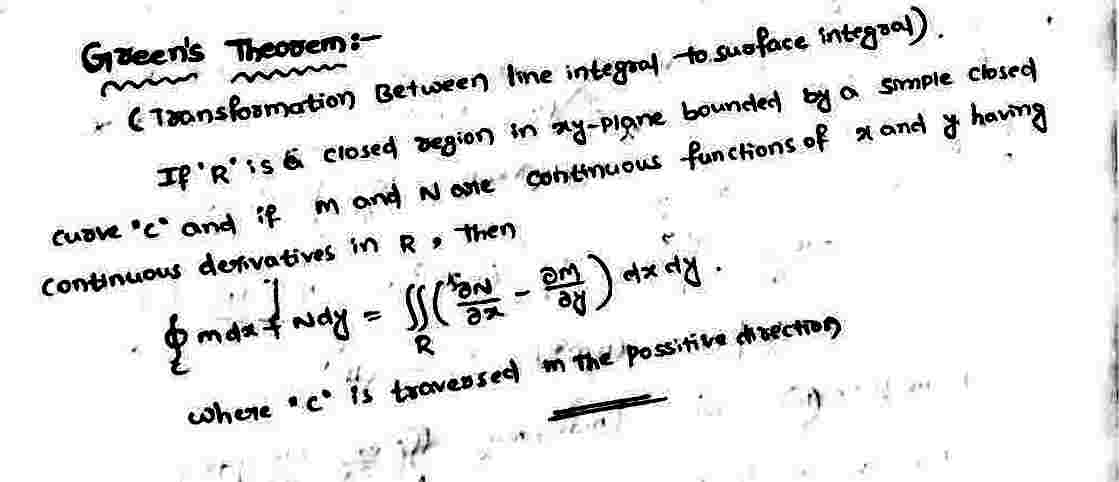 Green's Theorem:-
(Transformation Between line integral to surface integral).
If 'R' is a closed region in xy-plane bounded by a simple closed
curve "c" and if m and N are continuous functions of x and y having
continuous derivatives in R, then
∮c mdx + Ndy = ∬R (∂N/∂x - ∂M/∂y) dx dy.
where "c" is traversed in the possitive direction